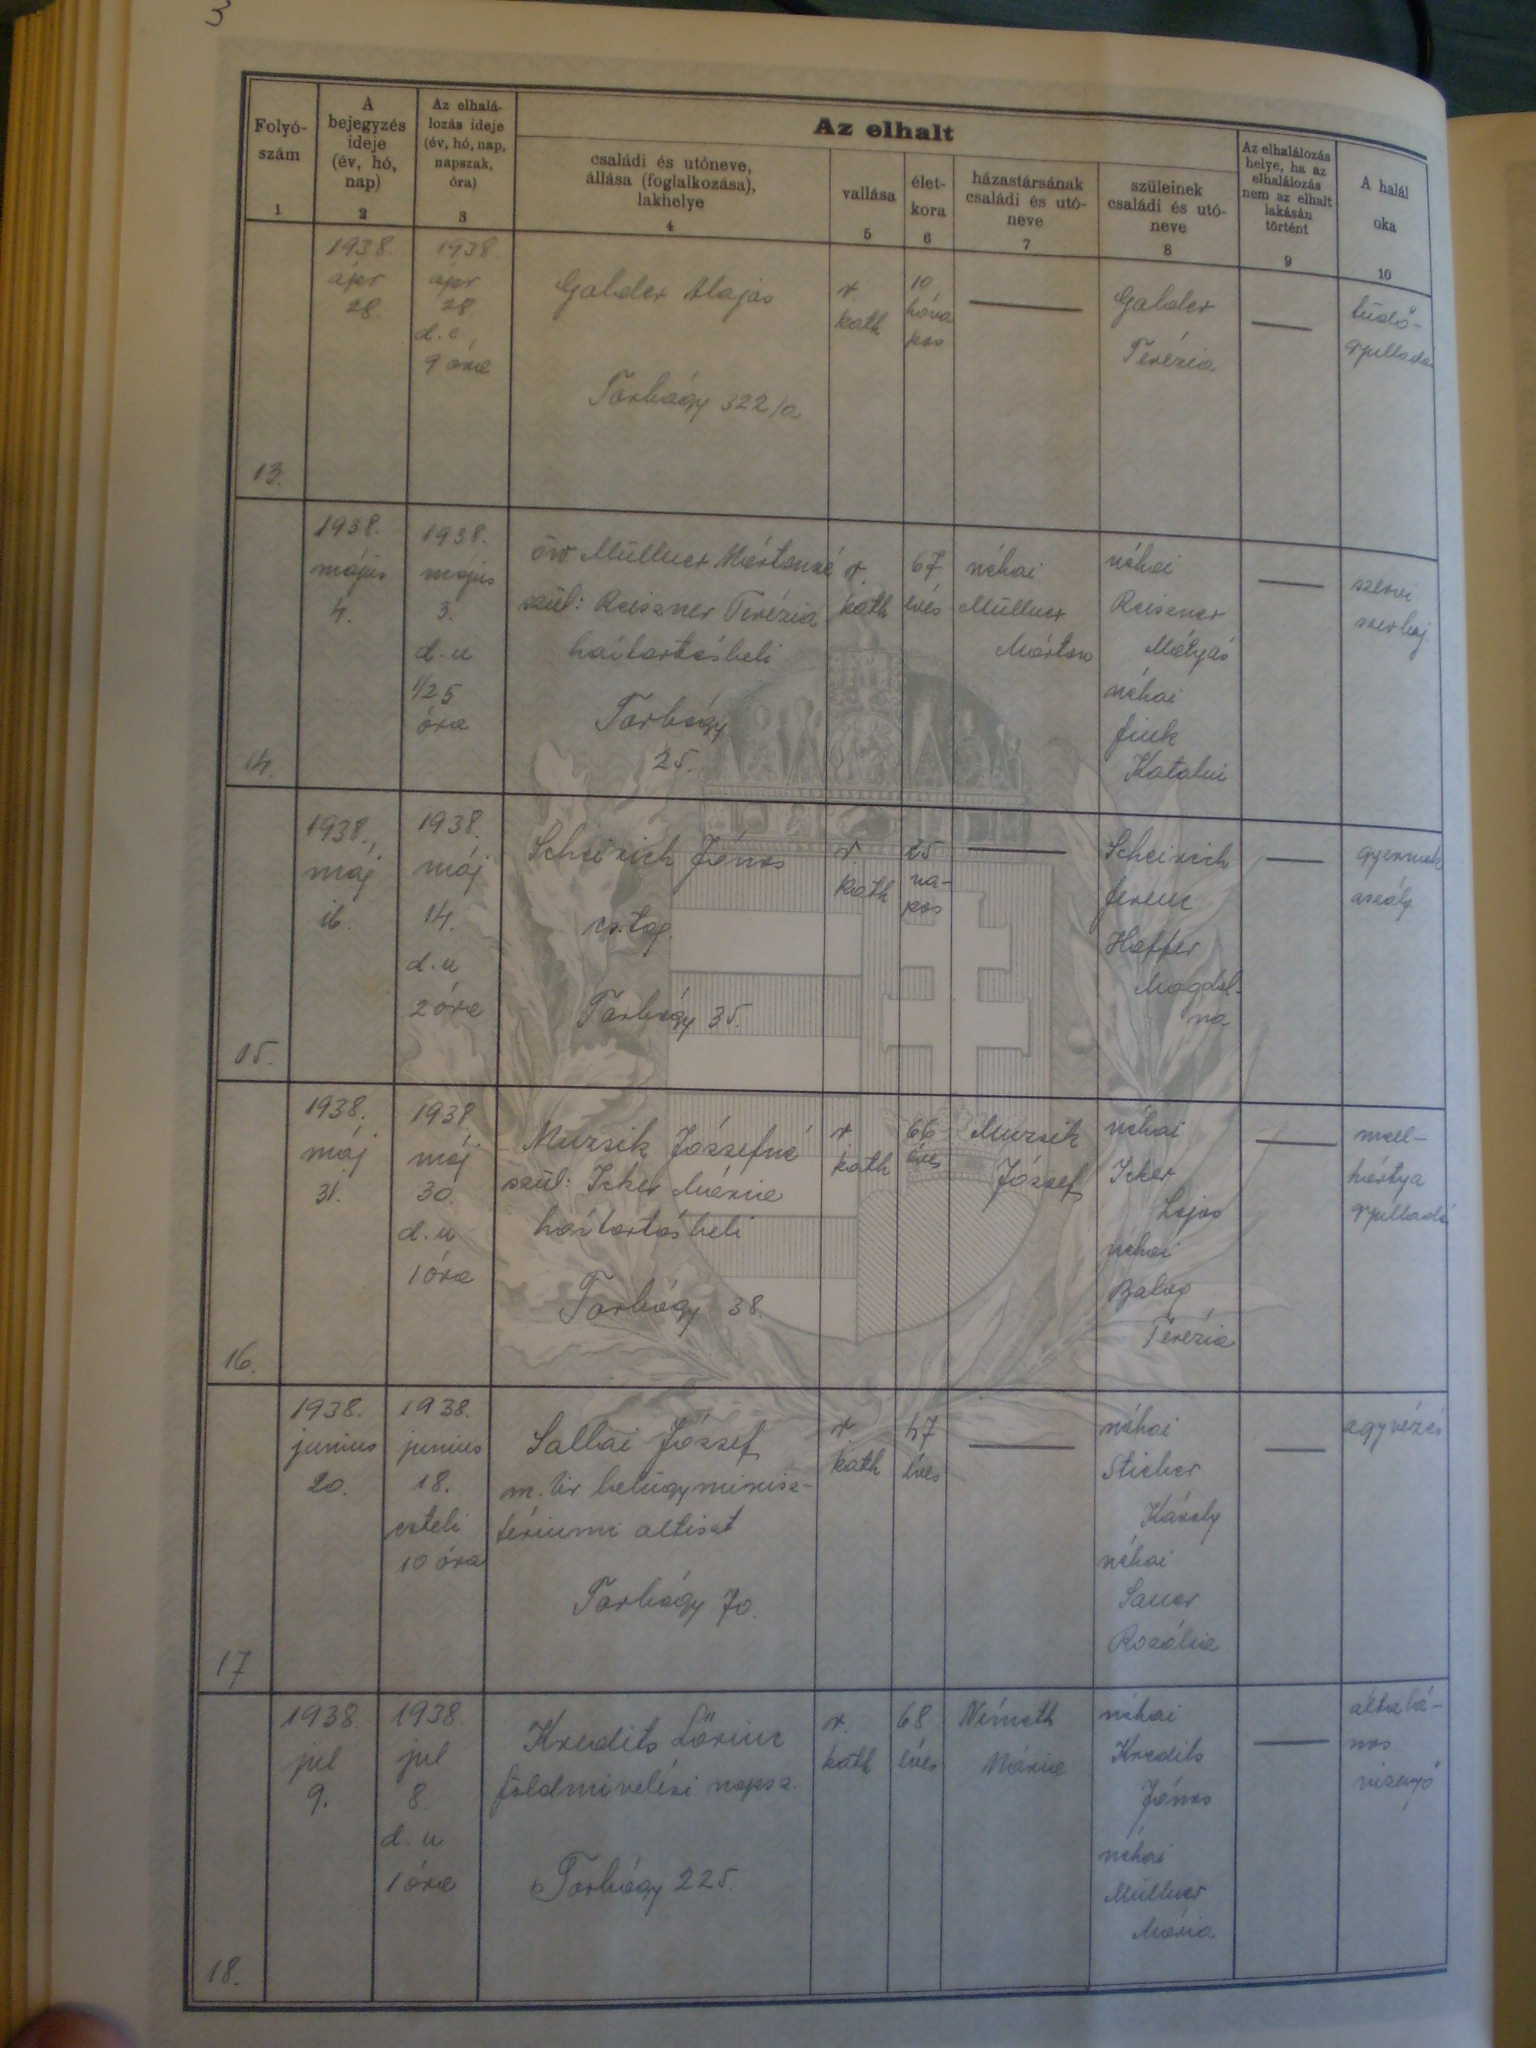 3
Folyó-
szám
1
A
bejegyzés
ideje
(év, hó,
nap)
2
Az elhalá-
lozás ideje
(év, hó, nap,
napszak,
óra)
3
Az elhalt
családi és utóneve,
állása (foglalkozása),
lakhelye
4
vallása
5
élet-
kora
6
házastársának
családi és utó-
neve
7
szüleinek
családi és utó-
neve
8
Az elhalálozás
helye, ha az
elhalálozás
nem az elhalt
lakásán
történt
9
A halál
oka
10
13.
1938.
ápr
28.
1938
ápr
28
d.e
9 óra
Gabder Alajos
Torbágy 322/a
r.
kath
10
hóna
pos
Gabder
Terézia
tüdő-
gyulladás
14.
1938.
május
4.
1938.
május
3.
d.u
1/25
óra
özv Müllner Mártonné
szül: Reiszner Terézia
háztartásbeli
Torbágy
25.
r.
kath
67
éves
néhai
Müllner
Márton
néhai
Reiszner
Mátyás
néhai
Fink
Katalin
szervi
szívbaj
15.
1938.
máj
16.
1938.
máj
14.
d.u
2 óra
Scheirich János
cs.tag.
Torbágy 35.
r.
kath
25
na-
pos
Scheirich
Ferenc
Haffer
Magdol-
na
gyermek
aszály
16.
1938.
máj
31.
1938.
máj
30.
d.u
1 óra
Muzsik Józsefné
szül: Icker Mária
háztartásbeli
Torbágy 38.
r.
kath
66
éves
Muzsik
József
néhai
Icker
Lajos
néhai
Balog
Terézia
mell-
hártya
gyulladás
17
1938.
junius
20.
1938.
junius
18.
esteli
10 óra
Sallai József
m. kir belügyminisz-
tériumi altiszt
Torbágy 70.
r.
kath
47
éves
néhai
Stieber
Károly
néhai
Sauer
Rozália
agyvérzés
18.
1938.
jul
9.
1938.
jul
8.
d.u
1 óra
Kredits Lőrinc
földmivelési napsz.
Torbágy 225.
r.
kath
68
éves
Németh
Mária
néhai
Kredits
János
néhai
Müllner
Mária
általá-
nos
vizenyő